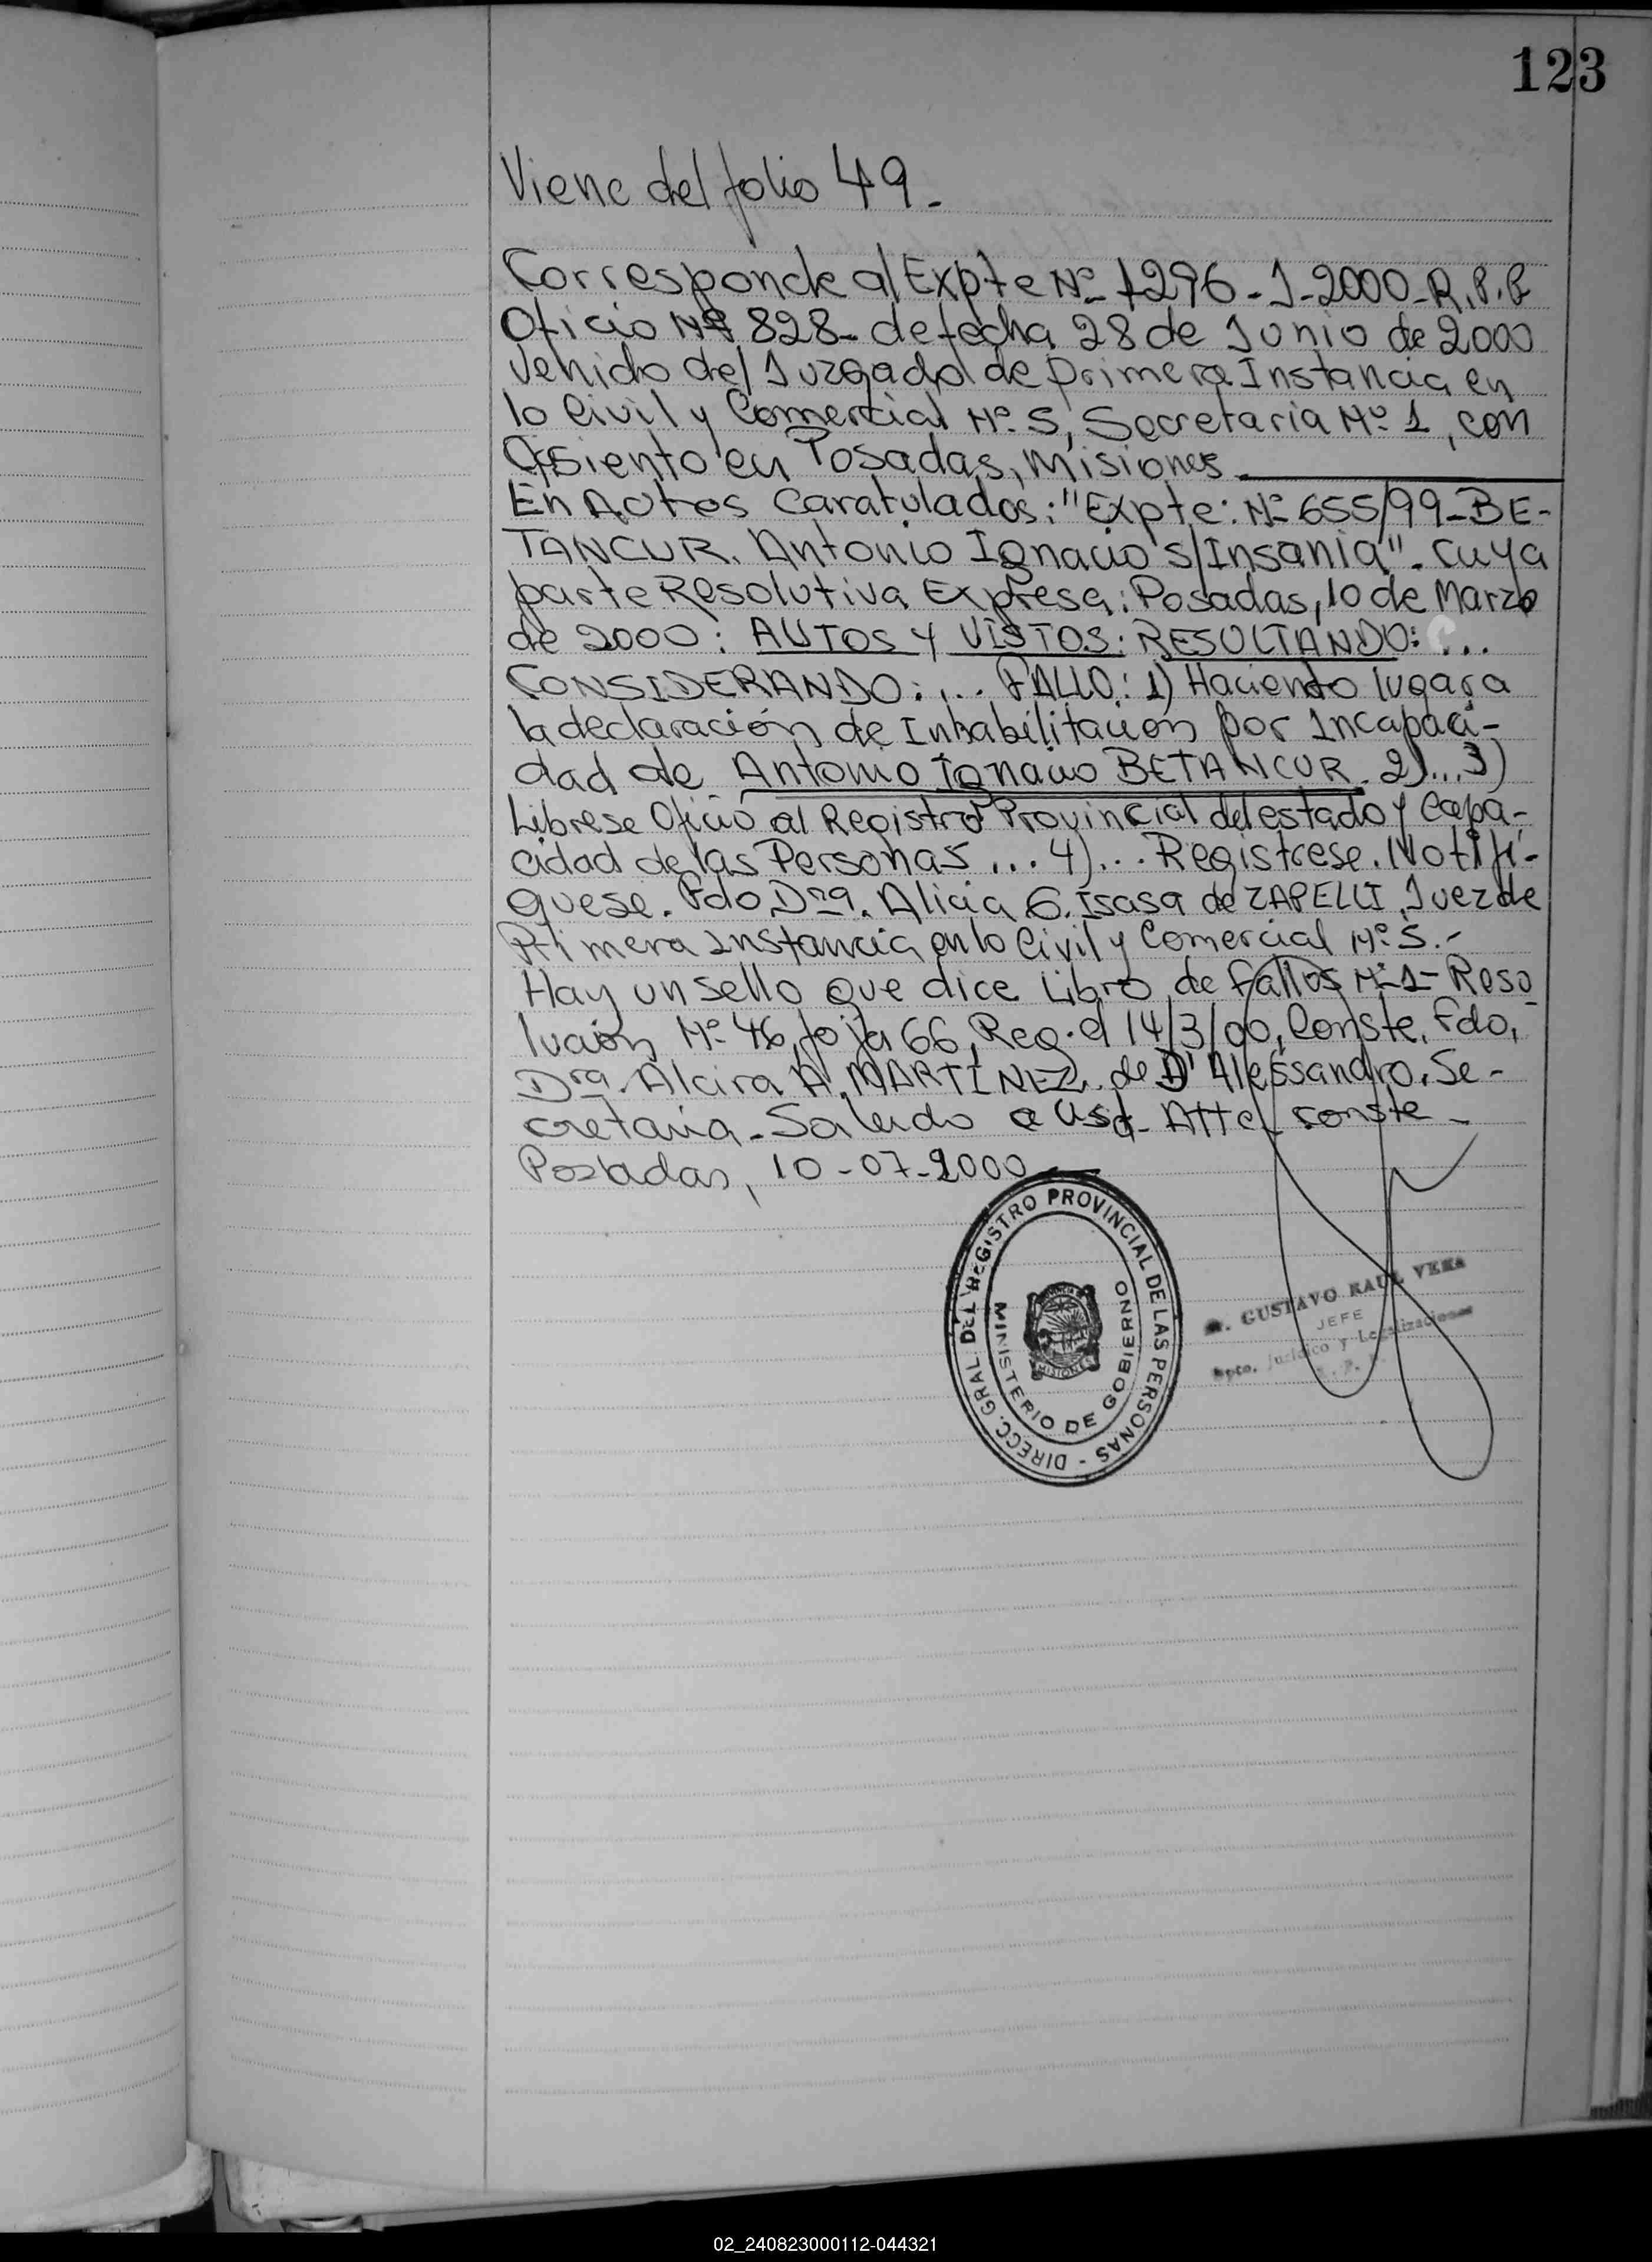 123
Viene del folio 49.
Corresponde al Expte Nº 1296-J-2000-R.P.P
Oficio Nº 828- de fecha 28 de Junio de 2000
venido del Juzgado de Primera Instancia en
lo Civil y Comercial Nº 5, Secretaría Nº 1, con
Asiento en Posadas, Misiones.
En Autos Caratulados: "Expte: Nº 655/99-BE-
TANCUR. Antonio Ignacio s/Insania". cuya
parte Resolutiva Expresa: Posadas, 10 de Marzo
de 2000: AUTOS Y VISTOS: RESULTANDO: ...
CONSIDERANDO: ... FALLO: 1) Haciendo lugar a
la declaración de Inhabilitación por Incapaci-
dad de Antonio Ignacio BETANCUR. 2)... 3)
Librese Oficio al Registro Provincial del estado y Capa-
cidad de las Personas ... 4)... Registrese. Notifi-
quese. Fdo. Dra. Alicia G. Isasa de ZAPELLI. Juez de
Primera Instancia en lo Civil y Comercial Nº 5.-
Hay un sello que dice Libro de fallos Nº 1- Reso
lución Nº 46, foja 66, Reg. el 14/3/00, Conste. Fdo,
Dra. Alcira A. MARTINEZ de D'Alessandro. Se-
cretaria. Saludo a Usd. Atte conste-
Posadas, 10-07-2000
DIRECC. GRAL. DEL REGISTRO PROVINCIAL DE LAS PERSONAS -
MINISTERIO DE GOBIERNO
MISIONES
GUSTAVO RAUL VERA
JEFE
Dpto. Jurídico y Legalizaciones
02_240823000112-044321